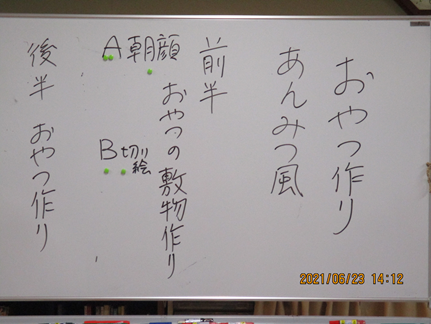 おやつ作り
あんみつ風
前半
おやつの敷物作り
A朝顔
B切り絵
後半 おやつ作り
2021/06/23 14:12